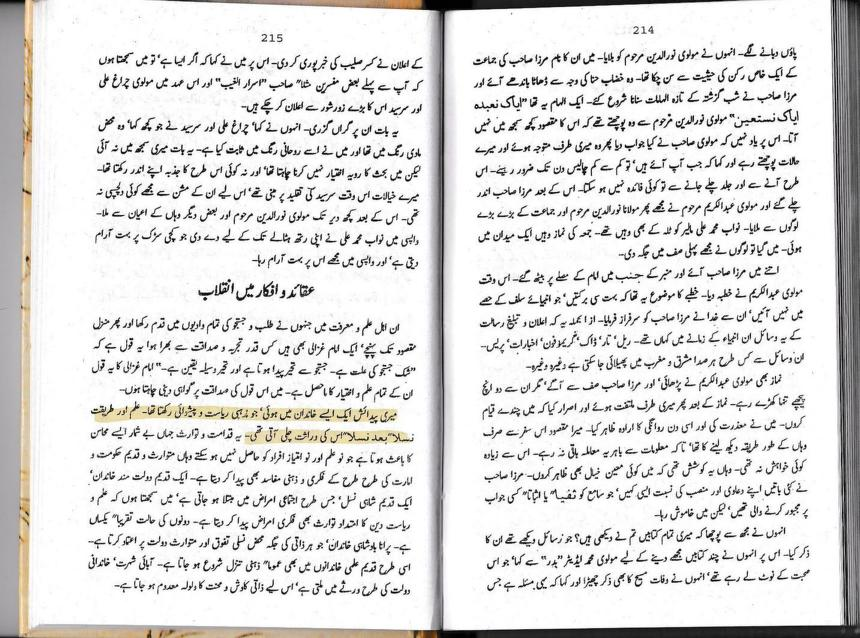 214
پاؤں دبانے لگے۔ انہوں نے مولوی نورالدین مرحوم کو بلایا۔ میں ان کا نام مرزا صاحب کی جماعت
کے ایک خاص رکن کی حیثیت سے سن چکا تھا۔ وہ خضاب حنا کی وجہ سے ڈھاٹا باندھے آئے اور
مرزا صاحب نے شب گزشتہ کے تازہ الہامات سنانا شروع کئے۔ ایک الہام یہ تھا "ایاک نعبدہ
ایاک نستعین" مولوی نورالدین مرحوم سے وہ پوچھتے تھے کہ اس کا مقصود کچھ سمجھ میں نہیں
آتا۔ اس پر یاد نہیں کہ مولوی صاحب نے کیا جواب دیا پھر وہ میری طرف متوجہ ہوئے اور میرے
حالات پوچھتے رہے اور کہا کہ جب آپ آئے ہیں تو کم سے کم چالیس دن تک ضرور رہیئے۔ اس
طرح آنے سے اور جلد چلے جانے سے تو کوئی فائدہ نہیں ہو سکتا۔ اس کے بعد مرزا صاحب اندر
چلے گئے اور مولوی عبدالکریم مرحوم نے مجھے پھر مولانا نورالدین مرحوم اور جماعت کے بڑے بڑے
لوگوں سے ملایا۔ نواب محمد علی مالیر کوٹلہ کے بھی وہیں تھے۔ جمعہ کی نماز وہیں ایک میدان میں
ہوئی۔ میں گیا تو لوگوں نے مجھے پہلی صف میں جگہ دی۔
اتنے میں مرزا صاحب آئے اور منبر کے جنب میں امام کے مصلے پر بیٹھ گئے۔ اس وقت
مولوی عبدالکریم نے خطبہ دیا۔ خطبے کا موضوع یہ تھا کہ بہت سی برکتیں، جو انبیائے سلف کے حصے
میں نہیں آئیں، ان سے خدا نے مرزا صاحب کو سرفراز فرمایا۔ از آنجملہ یہ کہ اعلان و تبلیغ رسالت
کے یہ وسائل ان انبیاء کے زمانے میں کہاں تھے۔ ریل، تار، ڈاک، گریموفون، اخبارات، پریس۔
ان وسائل سے کس طرح ہر صدا مشرق و مغرب میں پھیلائی جا سکتی ہے وغیرہ وغیرہ۔
نماز بھی مولوی عبدالکریم نے پڑھائی، اور مرزا صاحب صف سے آگے، مگر ان سے دو انچ
پیچھے تنہا کھڑے رہے۔ نماز کے بعد پھر میری طرف ملتفت ہوئے اور اصرار کیا کہ میں چندے قیام
کروں۔ میں نے معذرت کی اور اسی دن روانگی کا ارادہ ظاہر کیا۔ میرا مقصود اس سفر سے صرف
وہاں کے طور طریقہ دیکھ لینے کا تھا، تا کہ معلومات سے باہر یہ معاملہ باقی نہ رہے۔ اس سے زیادہ
کوئی خواہش نہ تھی۔ وہاں یہ کوشش تھی کہ میں کوئی معین خیال بھی ظاہر کروں۔ مرزا صاحب
نے کئی باتیں اپنے دعاوی اور منصب کی نسبت ایسی کہیں، جو سامع کو نفیا" یا اثباتا" کسی جواب
پر مجبور کرنے والی تھیں، لیکن میں خاموش رہا۔
انہوں نے مجھ سے پوچھا کہ میری تمام کتابیں تم نے دیکھی ہیں؟ جو رسائل دیکھے تھے ان کا
ذکر کیا۔ اس پر انہوں نے چند کتابیں مجھے دینے کے لیے مولوی محمد ایڈیٹر "بدر" سے کہا، جو اس
صحبت کے نوٹ لے رہے تھے، انہوں نے وفات مسیح کا بھی ذکر چھیڑا اور کہا کہ یہی مسئلہ ہے جس
215
کے اعلان نے کسر صلیب کی خبر پوری کر دی۔ اس پر میں نے کہا کہ اگر ایسا ہے، تو میں سمجھتا ہوں
کہ آپ سے پہلے بعض مفسرین مثلا" صاحب "اسرار الغیب" اور اس عہد میں مولوی چراغ علی
اور سرسید اس کا بڑے زور شور سے اعلان کر چکے ہیں۔
یہ بات ان پر گراں گزری۔ انہوں نے کہا، چراغ علی اور سرسید نے جو کچھ کہا، وہ محض
مادی رنگ میں تھا اور میں نے اسے روحانی رنگ میں ثابت کیا ہے۔ یہ بات میری سمجھ میں نہ آئی
لیکن میں بحث کا رویہ اختیار نہیں کرنا چاہتا تھا، اور نہ کوئی اس طرح کا جذبہ اپنے اندر رکھتا تھا۔
میرے خیالات اس وقت سرسید کی تقلید پر مبنی تھے، اس لیے ان کے مشن سے مجھے کوئی دلچسپی نہ
تھی۔ اس کے بعد کچھ دیر تک مولوی نورالدین مرحوم اور بعض دیگر وہاں کے اعیان سے ملا۔
واپسی میں نواب محمد علی نے اپنی رتھ بٹالے تک کے لیے دے دی جو کچی سڑک پر بہت آرام
دیتی ہے، اور واپسی میں مجھے اس پر بہت آرام رہا۔
عقائد و افکار میں انقلاب
ان اہل علم و معرفت میں جنہوں نے طلب و جستجو کی تمام وادیوں میں قدم رکھا اور پھر منزل
مقصود تک پہنچے، ایک امام غزالی بھی ہیں کس قدر تجربہ و صداقت سے بھرا ہوا یہ قول ہے کہ
"شک جستجو کی علت ہے۔ جستجو سے تحیر پیدا ہوتا ہے اور تحیر وسیلہ یقین ہے۔" امام غزالی کا یہ قول
ان کے تمام علم و اختیار کا ماحصل ہے۔ میں اس قول کی صداقت پر گواہی دینی چاہتا ہوں۔
میری پیدائش ایک ایسے خاندان میں ہوئی، جو مذہبی ریاست و پیشوائی رکھتا تھا۔ علم اور طریقت
نسلا" بعد نسلا" اس کی وراثت چلی آتی تھی۔ یہ قدامت و توارث جہاں بے شمار ایسے محاسن
کا باعث ہوتا ہے جو نو علم اور نو امتیاز افراد کو حاصل نہیں ہو سکتے وہاں متوارث و قدیم حکومت و
امارت کی طرح طرح کے فکری و ذہنی مفاسد بھی پیدا کر دیتا ہے۔ ایک قدیم دولت مند خاندان،
ایک قدیم شاہی نسل، جس طرح اجتماعی امراض میں مبتلا ہو جاتی ہے، میں سمجھتا ہوں کہ علم و
ریاست دین کا امتداد توارث بھی فکری امراض پیدا کر دیتا ہے۔ دونوں کی حالت تقریبا" یکساں
ہے۔ پرانا بادشاہی خاندان، جو ہر ذاتی کی جگہ محض نسلی تفوق اور متوارث دولت پر اعتماد کرتا ہے۔
اسی طرح قدیم علمی خاندانوں میں بھی عموما" ذہنی تنزل شروع ہو جاتا ہے۔ آبائی شہرت، خاندانی
دولت کی طرح ورثے میں ملتی ہے، اس لیے ذاتی کاوش و محنت کا ولولہ معدوم ہو جاتا ہے۔